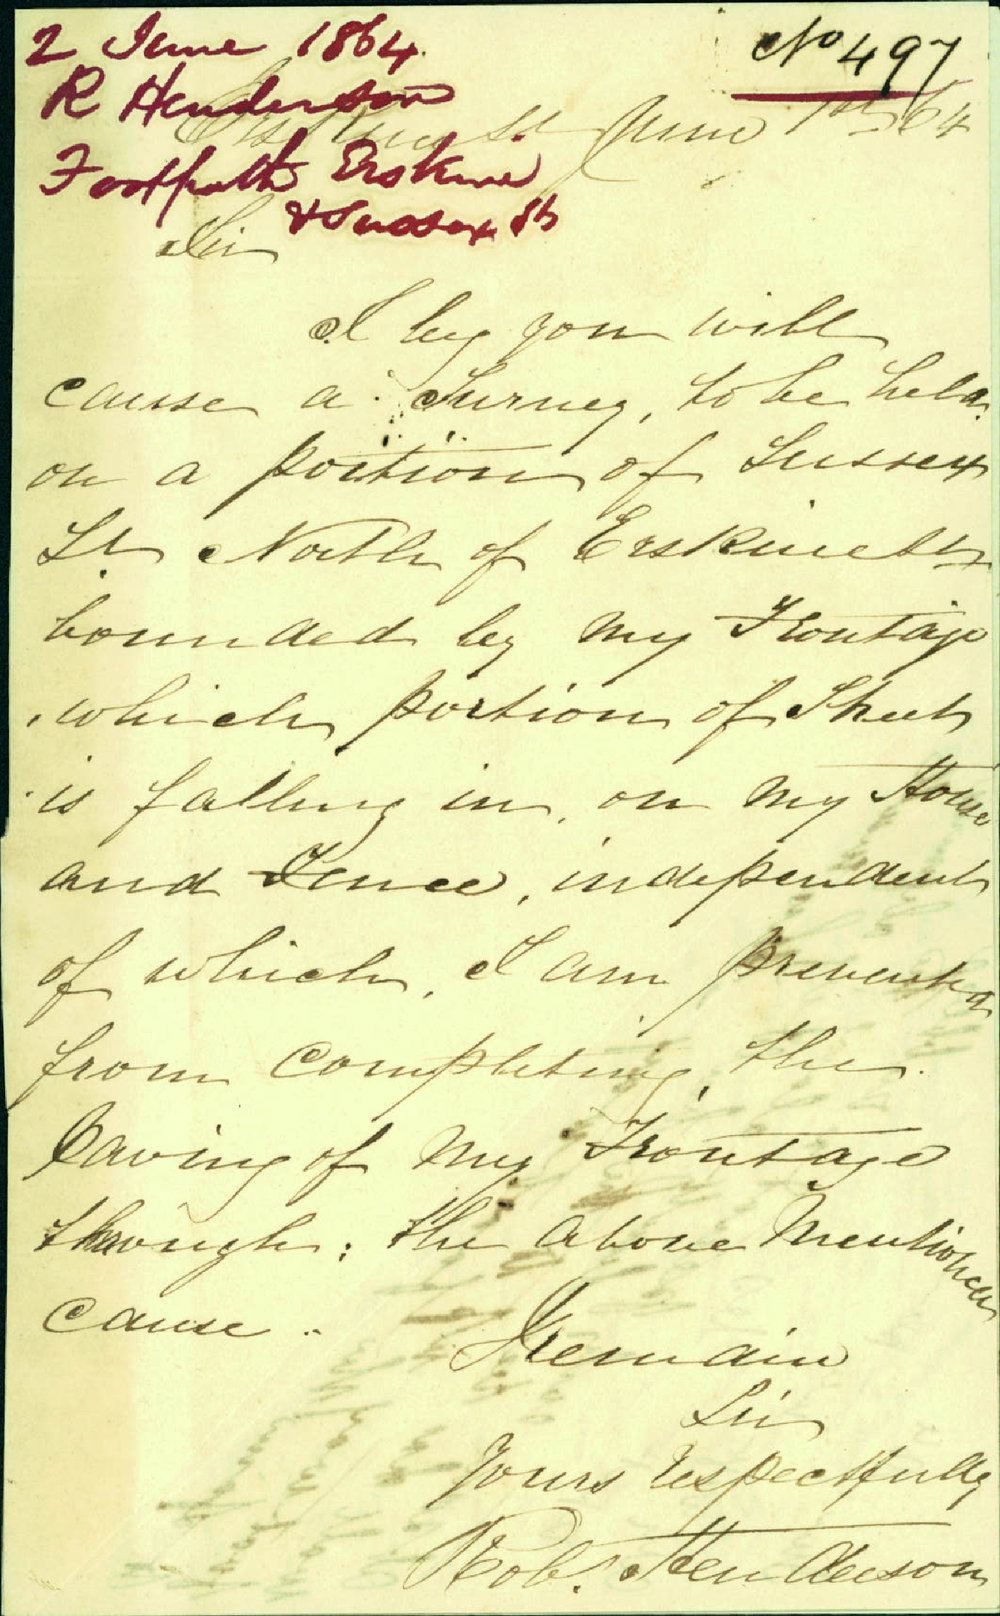 2 June 1864.
No 497
R Henderson
St June 1st 64
Footpath Erskine
& Sussex Sts
Sir
I beg you will
cause a Survey, to be held
on a portion of Sussex
St North of Erskine St
bounded by my Frontage
which portion of Street
is falling in, on my House
and Fence, independent
of which, I am prevented
from completing, the
Paving of my Frontage
through: the above Mentioned
cause.
I remain
Sir
Yours respectfully
Robt. Henderson